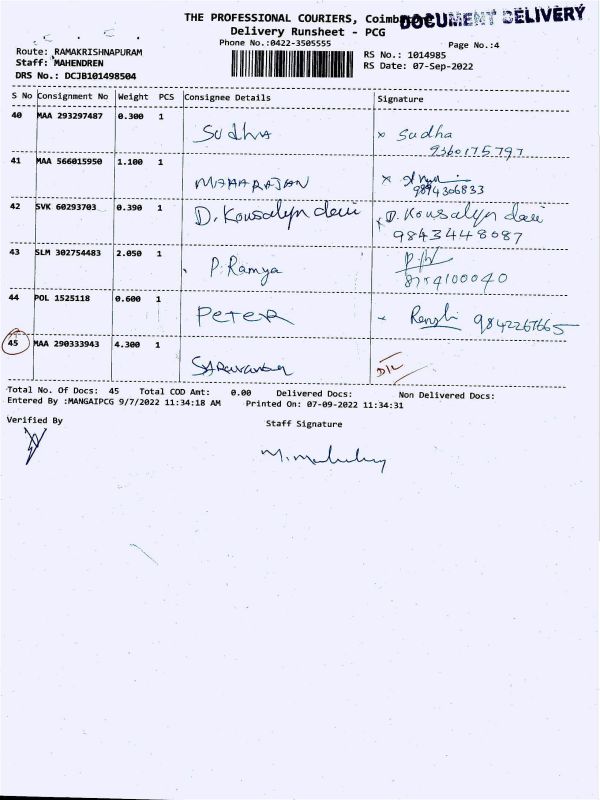 THE PROFESSIONAL COURIERS, Coimbatore
DOCUMENT DELIVERY
Delivery Runsheet - PCG
Phone No.:0422-3505555
Page No.:4
Route: RAMAKRISHNAPURAM
RS No.: 1014985
Staff: MAHENDREN
RS Date: 07-Sep-2022
DRS No.: DCJB101498504
S No Consignment No Weight PCS Consignee Details Signature
40 MAA 293297487 0.300 1
Sudha × Sudha
9360175797
41 MAA 566015950 1.100 1
MAHARAJAN ×
9894306833
42 SVK 60293703 0.390 1 D. Kousalya devi D. Kousalya devi
9843448087
43 SLM 302754483 2.050 1
P. Ramya
8754100040
44 POL 1525118 0.600 1
PETER 9842267665
45 MAA 290333943 4.300 1
Saravanan D/L
Total No. Of Docs: 45 Total COD Amt: 0.00 Delivered Docs: Non Delivered Docs:
Entered By :MANGAIPCG 9/7/2022 11:34:18 AM Printed On: 07-09-2022 11:34:31
Verified By
Staff Signature